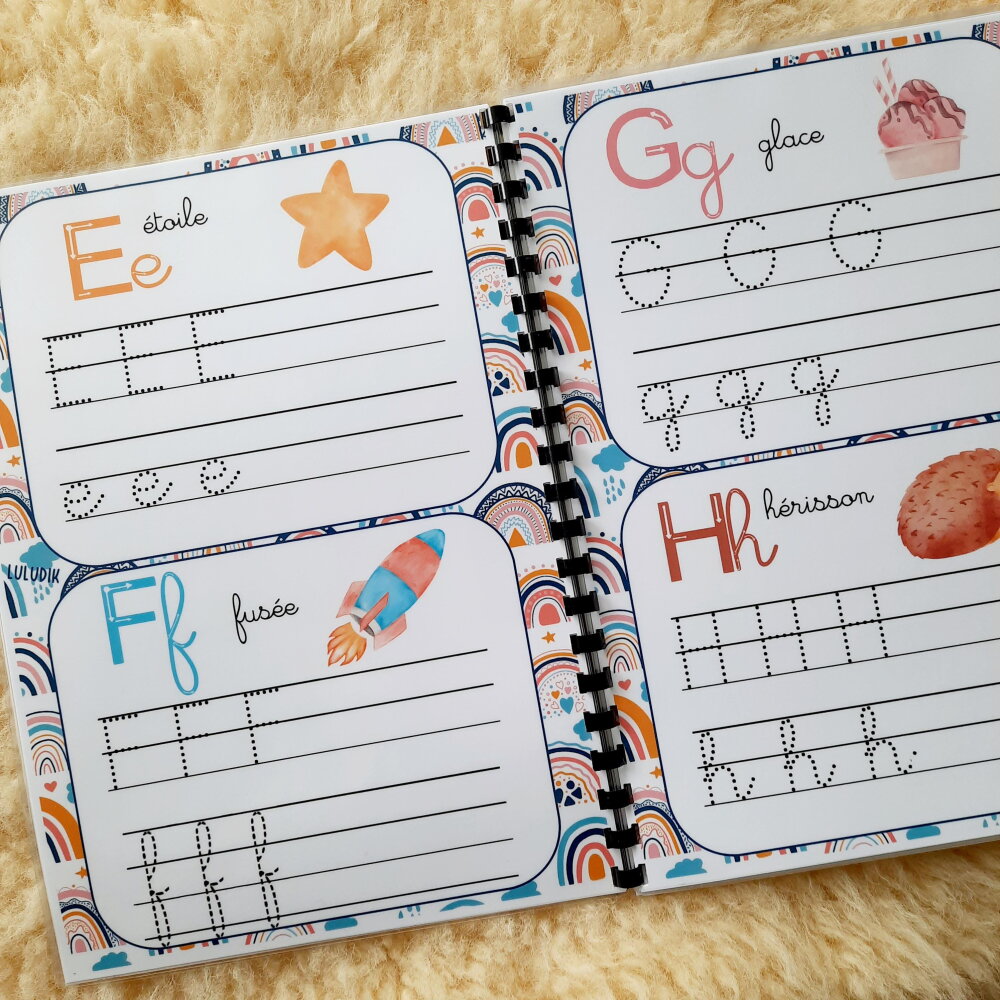 Ee étoile
E E E
e e e
LULUDIK
Ff fusée
F F F
f f f
Gg glace
G G G
g g g
Hh hérisson
H H H
h h h